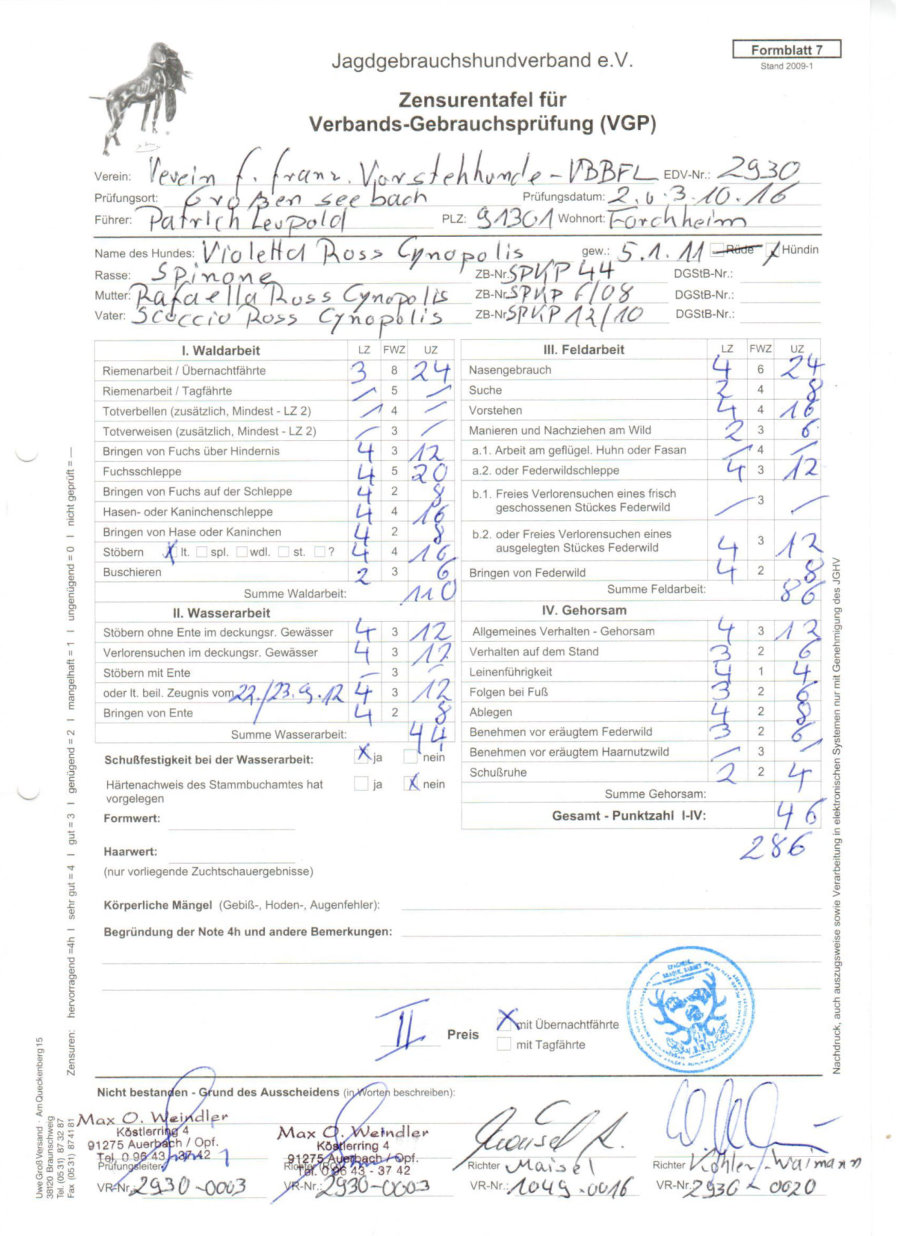 Jagdgebrauchshundverband e.V.
Formblatt 7
Stand 2009-1
Zensurentafel für
Verbands-Gebrauchsprüfung (VGP)
Verein: Verein f. franz. Vorstehhunde - VBBFL EDV-Nr.: 2930
Prüfungsort: Großenseebach Prüfungsdatum: 2. u 3.10.16
Führer: Patrich Leupold PLZ: 91301 Wohnort: Forchheim
Name des Hundes: Violetta Ross Cynopolis gew.: 5.1.11 Rüde Hündin
Rasse: Spinone ZB-Nr. SPKP 44 DGStB-Nr.:
Mutter: Rafaella Ross Cynopolis ZB-Nr. SPKP 6/08 DGStB-Nr.:
Vater: Scoccio Ross Cynopolis ZB-Nr. SPKP 12/10 DGStB-Nr.:
I. Waldarbeit LZ FWZ UZ
Riemenarbeit / Übernachtfährte 3 8 24
Riemenarbeit / Tagfährte – 5 –
Totverbellen (zusätzlich, Mindest - LZ 2) – 4 –
Totverweisen (zusätzlich, Mindest - LZ 2) – 3 –
Bringen von Fuchs über Hindernis 4 3 12
Fuchsschleppe 4 5 20
Bringen von Fuchs auf der Schleppe 4 2 8
Hasen- oder Kaninchenschleppe 4 4 16
Bringen von Hase oder Kaninchen 4 2 8
Stöbern X lt. spl. wdl. st. ? 4 4 16
Buschieren 2 3 6
Summe Waldarbeit: 110
II. Wasserarbeit
Stöbern ohne Ente im deckungsr. Gewässer 4 3 12
Verlorensuchen im deckungsr. Gewässer 4 3 12
Stöbern mit Ente – 3 –
oder lt. beil. Zeugnis vom 22./23.9.12 4 3 12
Bringen von Ente 4 2 8
Summe Wasserarbeit: 44
Schußfestigkeit bei der Wasserarbeit: X ja nein
Härtenachweis des Stammbuchamtes hat ja X nein
vorgelegen
Formwert:
Haarwert:
(nur vorliegende Zuchtschauergebnisse)
III. Feldarbeit LZ FWZ UZ
Nasengebrauch 4 6 24
Suche 2 4 8
Vorstehen 4 4 16
Manieren und Nachziehen am Wild 2 3 6
a.1. Arbeit am geflügel. Huhn oder Fasan – 4 –
a.2. oder Federwildschleppe 4 3 12
b.1. Freies Verlorensuchen eines frisch
geschossenen Stückes Federwild – 3 –
b.2. oder Freies Verlorensuchen eines
ausgelegten Stückes Federwild 4 3 12
Bringen von Federwild 4 2 8
Summe Feldarbeit: 86
IV. Gehorsam
Allgemeines Verhalten - Gehorsam 4 3 12
Verhalten auf dem Stand 3 2 6
Leinenführigkeit 4 1 4
Folgen bei Fuß 3 2 6
Ablegen 4 2 8
Benehmen vor eräugtem Federwild 3 2 6
Benehmen vor eräugtem Haarnutzwild – 3 –
Schußruhe 2 2 4
Summe Gehorsam:
Gesamt - Punktzahl I-IV: 46
286
Körperliche Mängel (Gebiß-, Hoden-, Augenfehler):
Begründung der Note 4h und andere Bemerkungen:
II Preis X mit Übernachtfährte
mit Tagfährte
Nicht bestanden - Grund des Ausscheidens (in Worten beschreiben):
Max O. Weindler
Köstlerring 4
91275 Auerbach / Opf.
Tel. 0 96 43 - 37 42
Prüfungsleiter
VR-Nr. 2930-0003
Max O. Weindler
Köstlerring 4
91275 Auerbach / Opf.
Tel. 0 96 43 - 37 42
Richter
VR-Nr.: 2930-0003
Richter Maisel
VR-Nr.: 1049-0016
Richter Köhler-Waimann
VR-Nr.: 2930-0020
Zensuren: hervorragend =4h I sehr gut = 4 I gut = 3 I genügend = 2 I mangelhaft = 1 I ungenügend = 0 I nicht geprüft = —
Uwe Groß Versand · Am Queckenberg 15
38120 Braunschweig
Tel. (05 31) 87 32 87
Fax (05 31) 87 41 81
Nachdruck, auch auszugsweise sowie Verarbeitung in elektronischen Systemen nur mit Genehmigung des JGHV